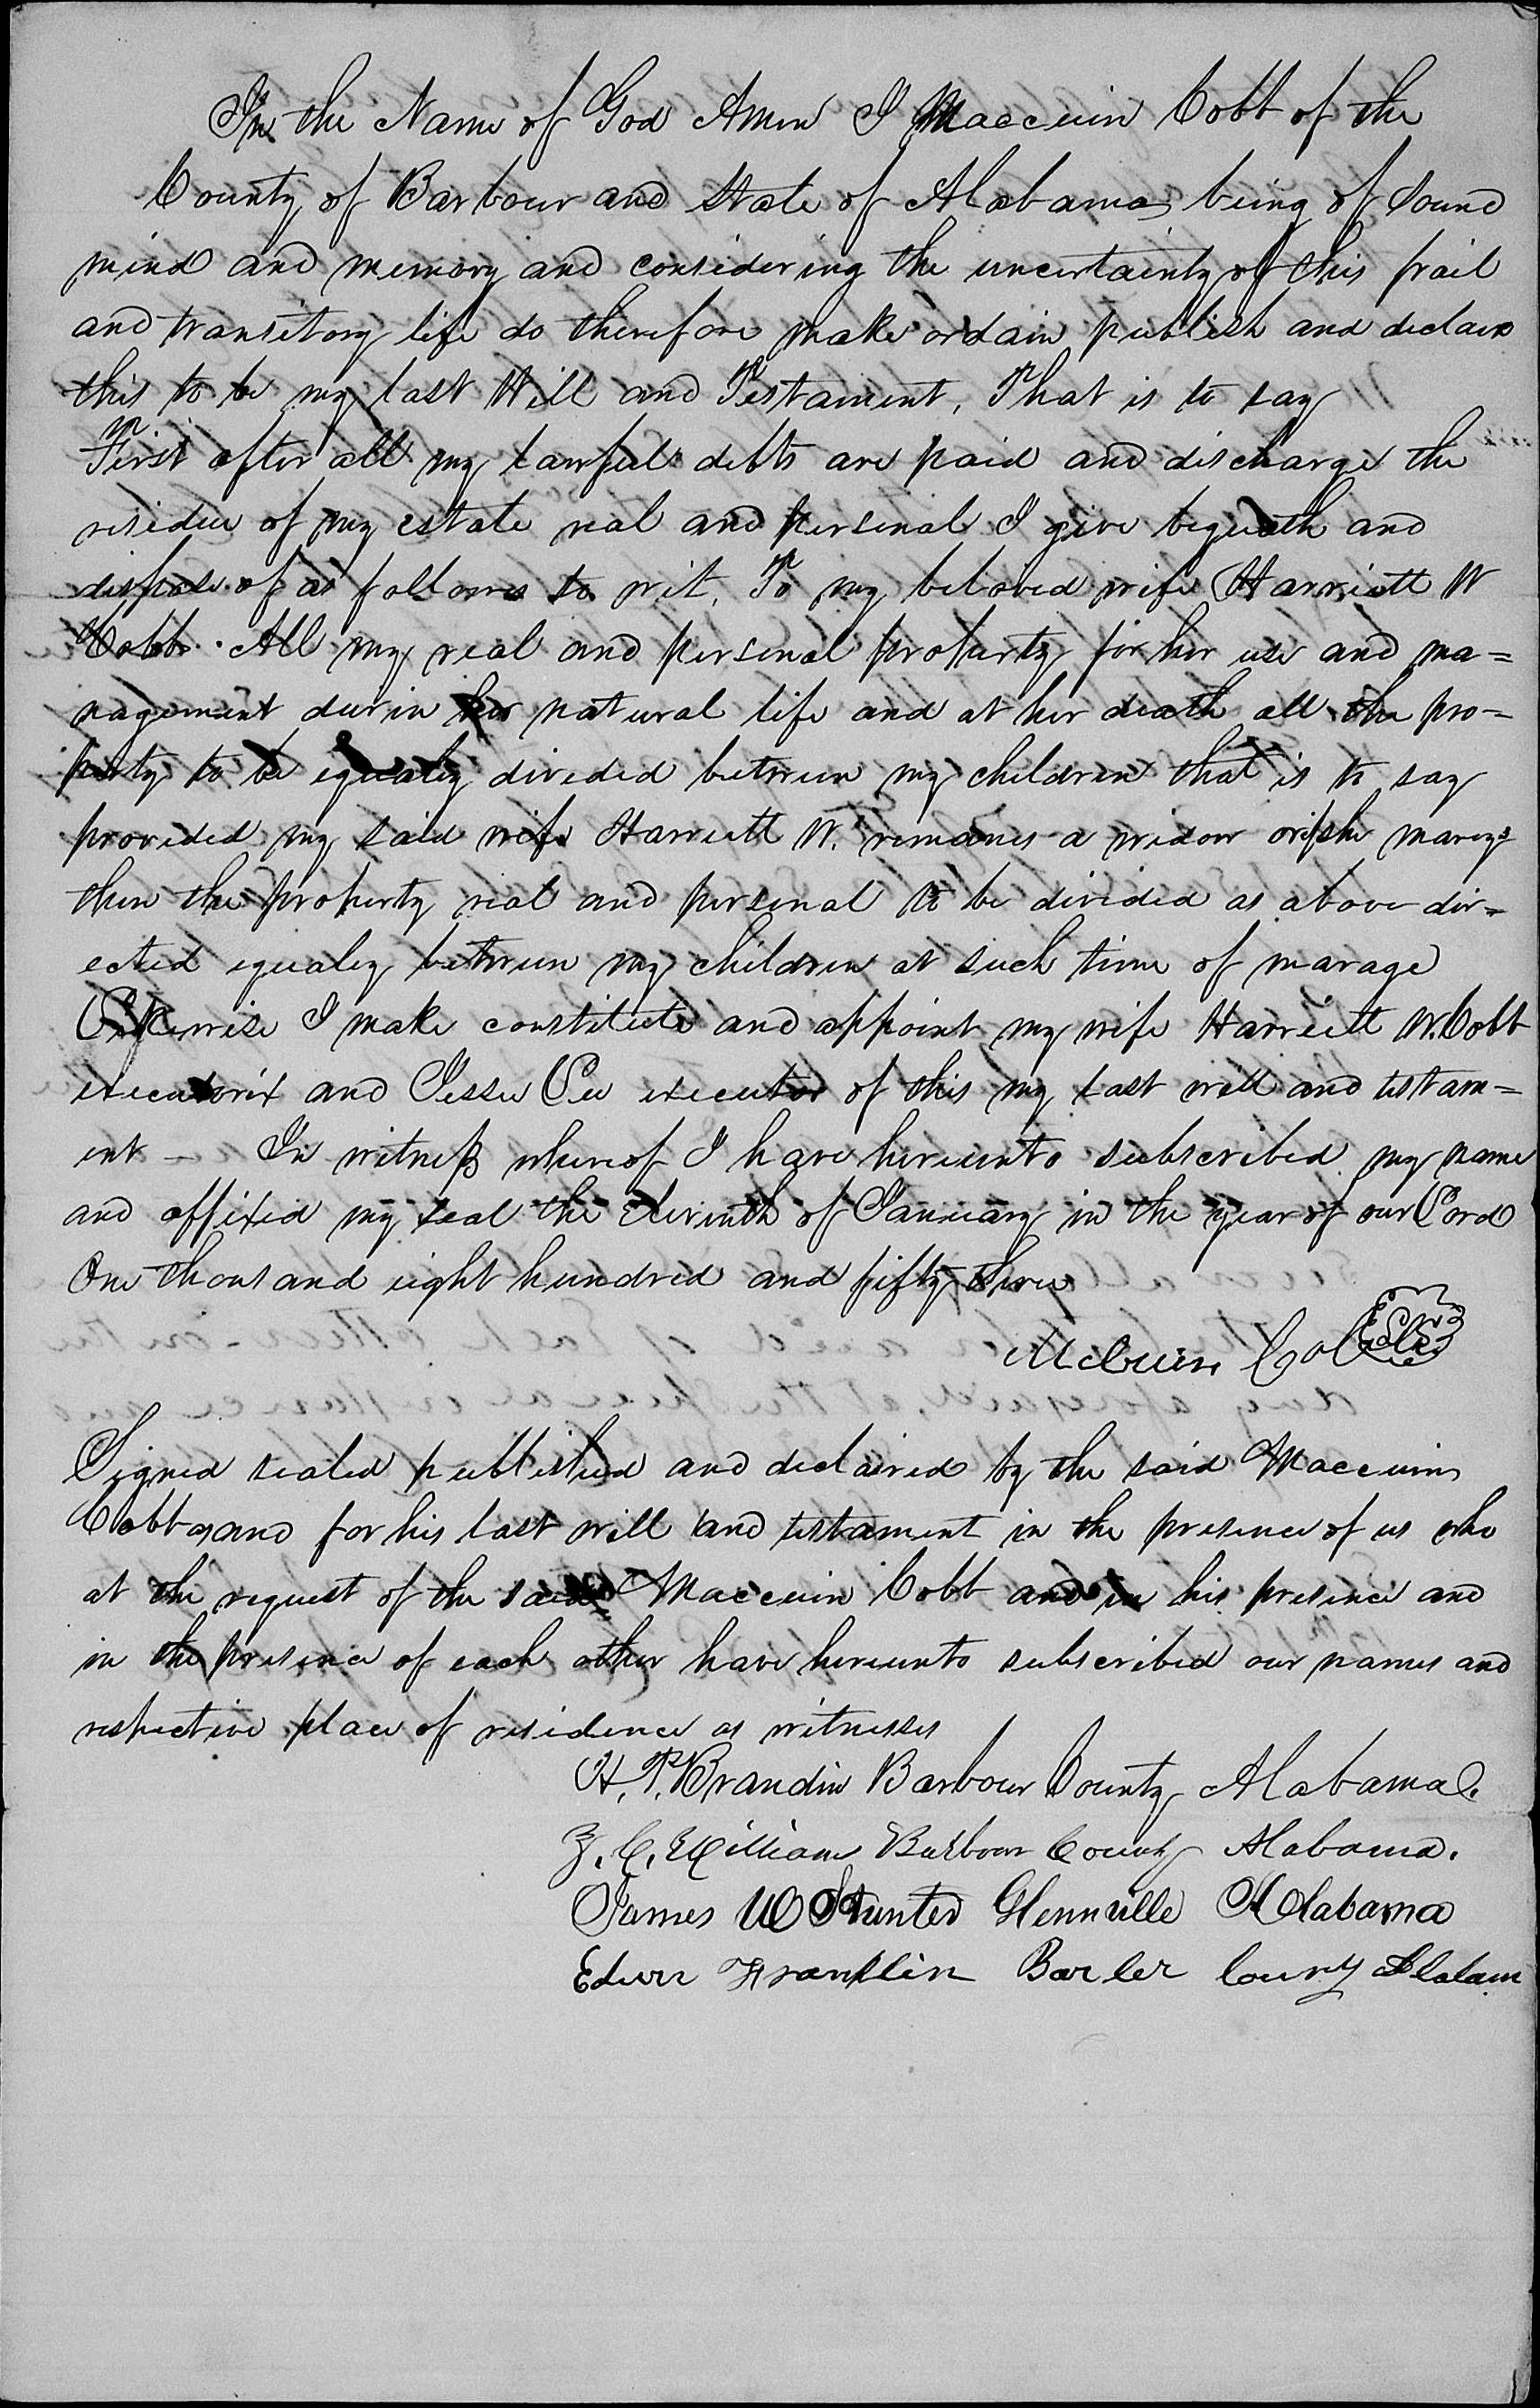 In the Name of God Amen I Maccuin Cobb of the
County of Barbour and State of Alabama being of sound
mind and memory and considering the uncertainty of this frail
and transitory life do therefore make ordain publish and declair
this to be my last Will and Testament, That is to say
First after all my lawful debts are paid and discharge the
residue of my estate real and persinal I give bequeath and
dispose of as follows to wit, To my beloved wife Harriett W
Cobb. All my real and persinal property for her use and ma=
nagement durin her natural life and at her death all the pro=
perty to be equaley divided between my children that is to say
provided my said wife Harriett W. remanes a widow or if she marys
then the property real and persinal to be divided as above dir=
ected equaley between my children at such time of marage
Likewise I make constitute and appoint my wife Harriett W. Cobb
executorix and Jesse Lee executor of this my last will and testam=
ent – In witness whereof I have hereunto subscribed my name
and affixed my seal the Eleventh of January in the year of our Lord
One thousand eight hundred and fifty three
McCuin Cobb
Signed sealed published and declaired by the said Maccuin
Cobb as and for his last will and testament in the presence of us who
at the request of the said Maccuin Cobb and in his presence and
in the presence of each other have hereunto subscribed our names and
respective place of residence as witnesses
H. T. Brandin Barbour County Alabama.
Z. C. Williams Barbour County Alabama.
James W Hunter Glennville Alabama
Edwin Franklin Barber County Alabam